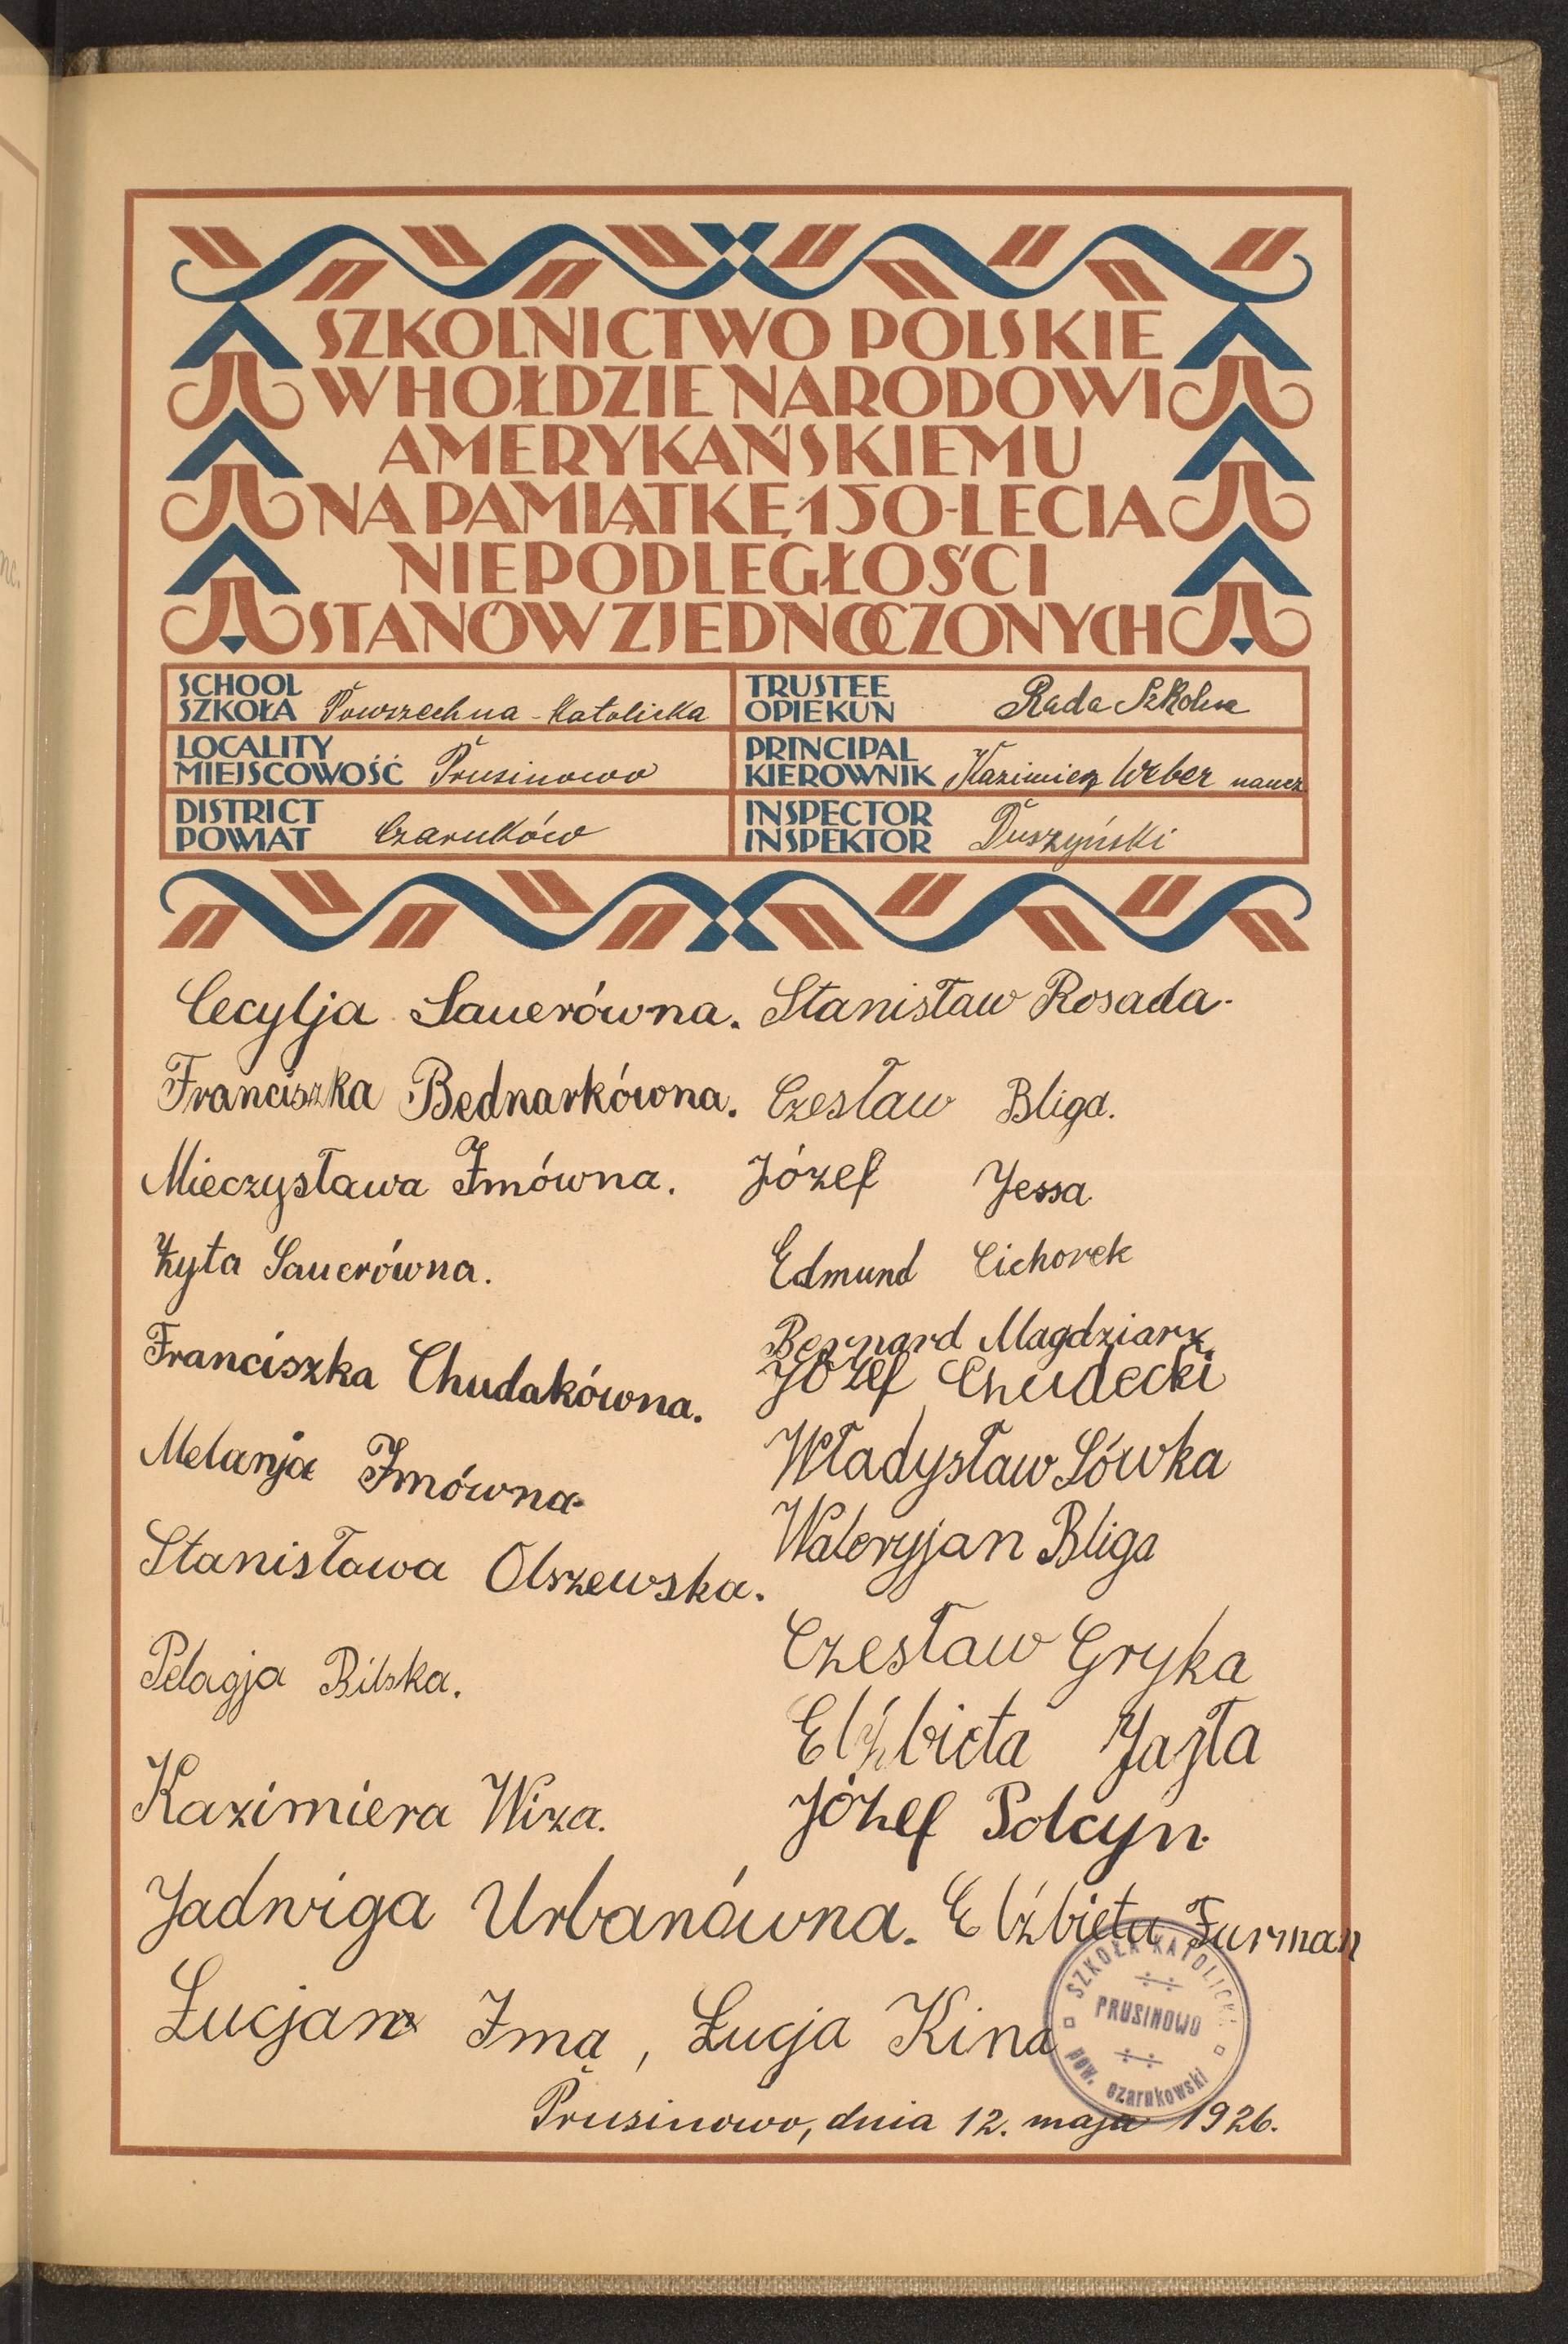 SZKOLNICTWO POLSKIE
W HOŁDZIE NARODOWI
AMERYKAŃSKIEMU
NA PAMIĄTKĘ 150-LECIA
NIEPODLEGŁOŚCI
STANÓW ZJEDNOCZONYCH
SCHOOL
SZKOŁA Powszechna-Katolicka
TRUSTEE
OPIEKUN Rada Szkolna
LOCALITY
MIEJSCOWOŚĆ Prusinowo
PRINCIPAL
KIEROWNIK Kazimierz Weber naucz
DISTRICT
POWIAT Czarnków
INSPECTOR
INSPEKTOR Duszyński
Cecylja Sauerówna. Stanisław Rosada.
Franciszka Bednarkówna. Czesław Bliga.
Mieczysława Imówna. Józef Jessa
Zyta Sauerówna. Edmund Cichorek
Bernard Magdziarz.
Franciszka Chudakówna. Józef Chudecki
Melanja Imówna. Władysław Sówka
Waleryjan Bliga
Stanisława Olszewska.
Czesław Gryka
Pelagja Bilska.
Elżbieta Jazła
Kazimiera Wiza. Józef Polcyn.
Jadwiga Urbanówna. Elżbieta Furman
Łucjan Imą, Łucja Kina
SZKOŁA KATOLICKA
PRUSINOWO
pow. czarnkowski
Prusinowo, dnia 12. maja 1926.